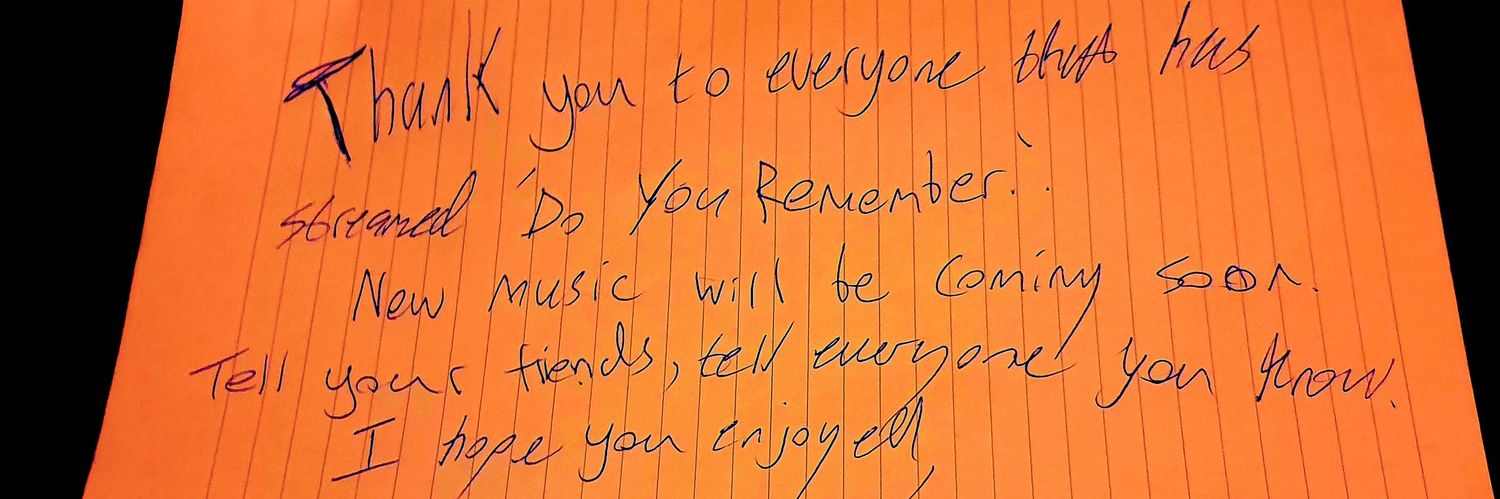 Thank you to everyone that has
streamed 'Do You Remember'.
New music will be coming soon.
Tell your fiends, tell everyone you know.
I hope you enjoyed,